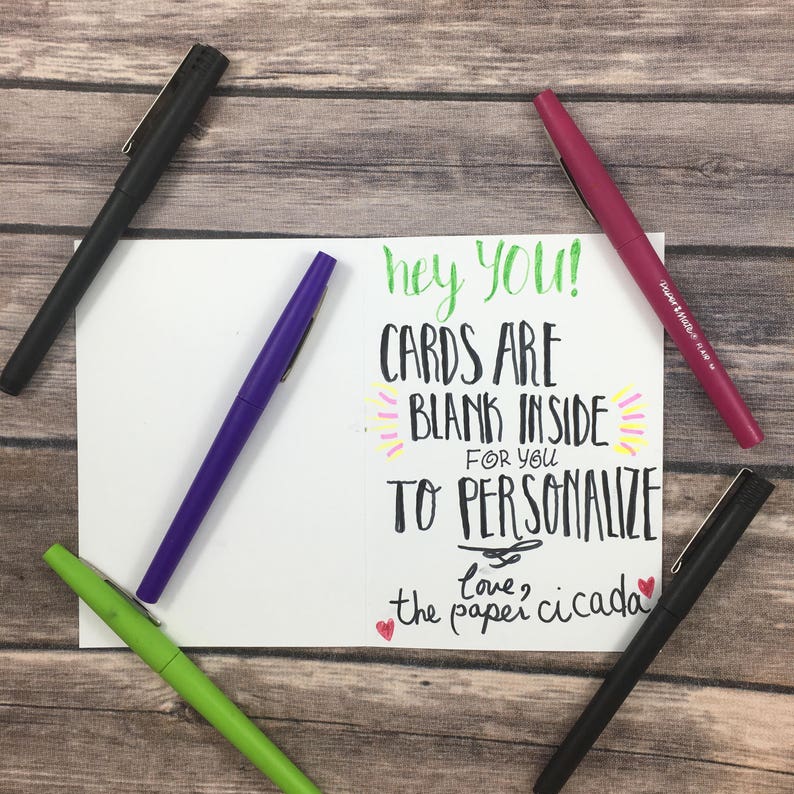 hey YOU!
CARDS ARE
BLANK INSIDE
FOR YOU
TO PERSONALIZE
love,
the paper cicada
Paper Mate® FLAIR M